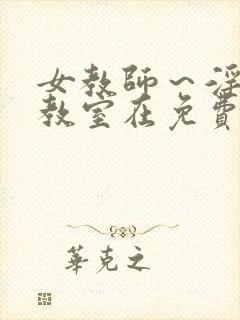 女教师～淫
教室在免費
華克之